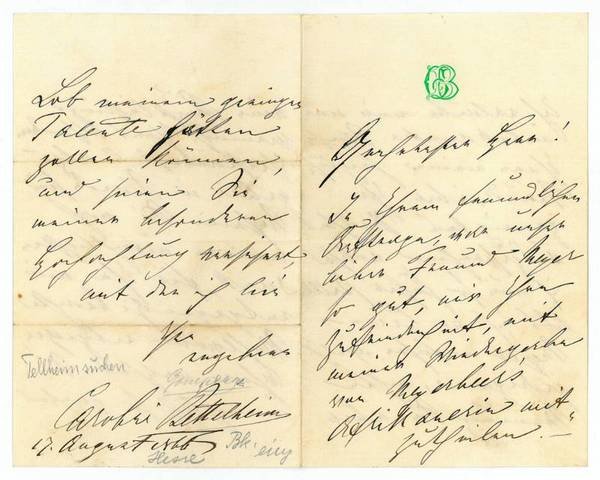 CB
Geehrtester Herr!
In Ihrem freundlichen
Auftrage, war unser
lieber Freund Meyer
so gut, mir Ihre
Zufriedenheit, mit
meiner Wiedergabe
von Meyerbeers,
Afrikanerin mit-
zutheilen. —
Lob meinem geringen
Talente
zollen können,
und seien Sie
meiner besonderen
Hochachtung versichert
mit der ich bin
Ihre
ergebene
Tellheim suchen
Caroline Bettelheim
17. August 1866
Hesse